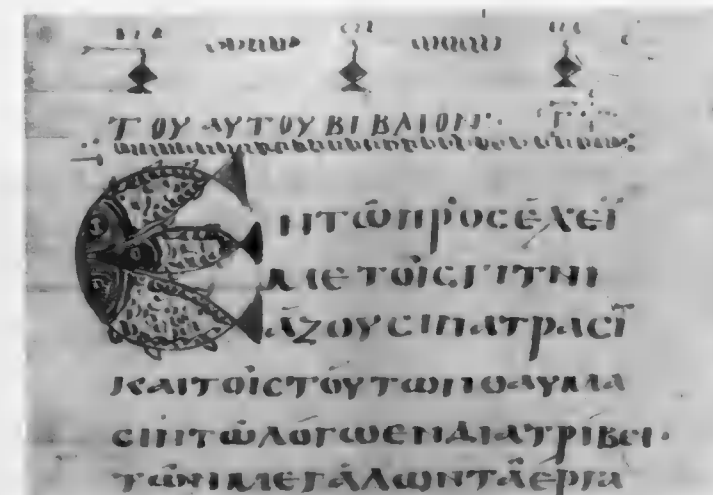 ΤΟΥ ΑΥΤΟΥ ΒΙΒΛΙΟΝ· Γ
ΕΝΤῶΠΡὸϹΕΧΕῖ
ΜΕΤΟῖϹΓΙΤΝΙ
άΖΟΥϹΙΠΑΤΡάϹΪ
ΚΑΙΤΟῖϹΤΟύΤΩΝΘΑΥΜΑ
ϹΙΝΤῶΛόΓΩΕΝΔΙΑΤΡίΒΕΙ·
ΤῶΝΜΕΓάΛΩΝΤᾶΕΡΓΑ